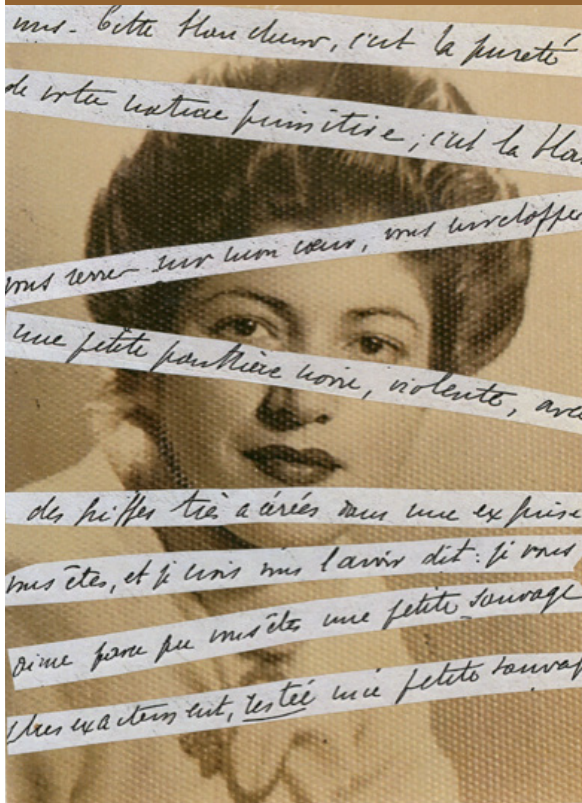 vous. Cette blancheur, c'est la pureté
de votre nature primitive, c'est la
vous serrer sur mon cœur, vous
une petite panthère noire, violente, avec
des griffes très acérées dans une
vous êtes, et je crois vous l'avoir dit : je vous
aime parce que vous êtes une petite sauvage
plus exactement, restée une petite